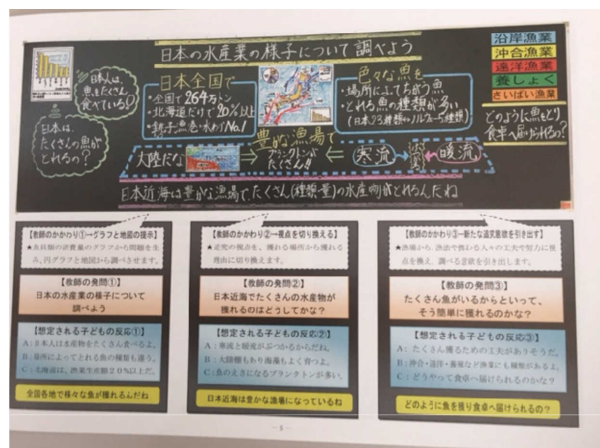 日本の水産業の様子について調べよう
日本人は、
魚をたくさん
食べている!
日本は、
たくさんの魚が
とれるの?
日本全国で
・全国で264万トン
・北海道だけで20%以上
色々な魚を
・場所によってちがう魚
・とれる魚の種類が多い
豊かな漁場で
大陸だな
プランクトンが
たくさん
寒流
暖流
日本近海は豊かな漁場で、たくさん(種類、量)の水産物がとれるんだね
沿岸漁業
沖合漁業
遠洋漁業
養しょく
さいばい漁業
どのように魚をとり
食卓へ届けられるの?
【教師のかかわり①→グラフと地図の提示】
★魚貝類の消費量のグラフから問題を生
み、円グラフと地図から調べさせます。
【教師の発問①】
日本の水産業の様子について
調べよう
【想定される子どもの反応①】
A:日本人は水産物をたくさん食べるよ。
B:場所によってとれる魚の種類も違う。
C:北海道は、漁業生産額20%以上だ。
全国各地で様々な魚が獲れるんだね
【教師のかかわり②→視点を切り換える】
★追究の視点を、獲れる場所から獲れる
理由に切り換えます。
【教師の発問②】
日本近海でたくさんの水産物が
獲れるのはどうしてかな?
【想定される子どもの反応②】
A:寒流と暖流がぶつかるからだね。
B:大陸棚もあり海藻もよく育つよ。
C:魚のえさになるプランクトンが多い。
日本近海は豊かな漁場になっているね
【教師のかかわり③→新たな追究意欲を引き出す】
★漁場から、漁法や携わる人々の工夫や努力に視
点を換え、調べる意欲を引き出します。
【教師の発問③】
たくさん魚がいるからといって、
そう簡単に獲れるのかな?
【想定される子どもの反応③】
A:たくさん獲るための工夫がありそうだ。
B:沖合・遠洋・養殖など漁業にも種類があるよ。
C:どうやって食卓へ届けられるのかな?
どのように魚を獲り食卓へ届けられるの?